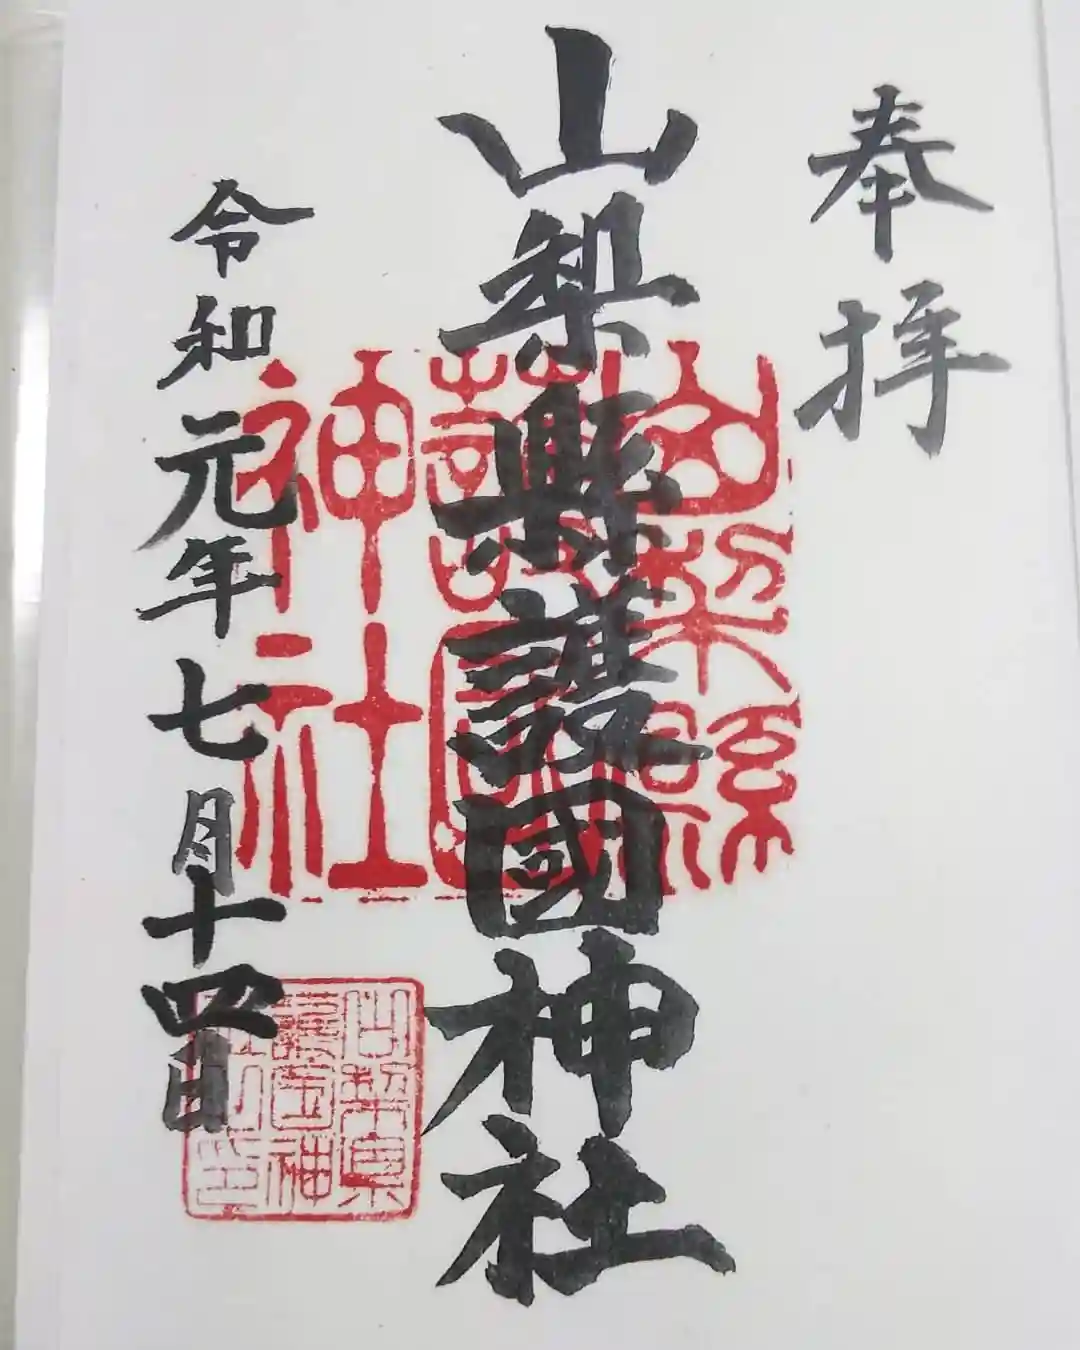 奉拝
山梨縣護國神社
令和元年七月十四日
山梨縣
護國
神社
山梨県
護国神
社之印